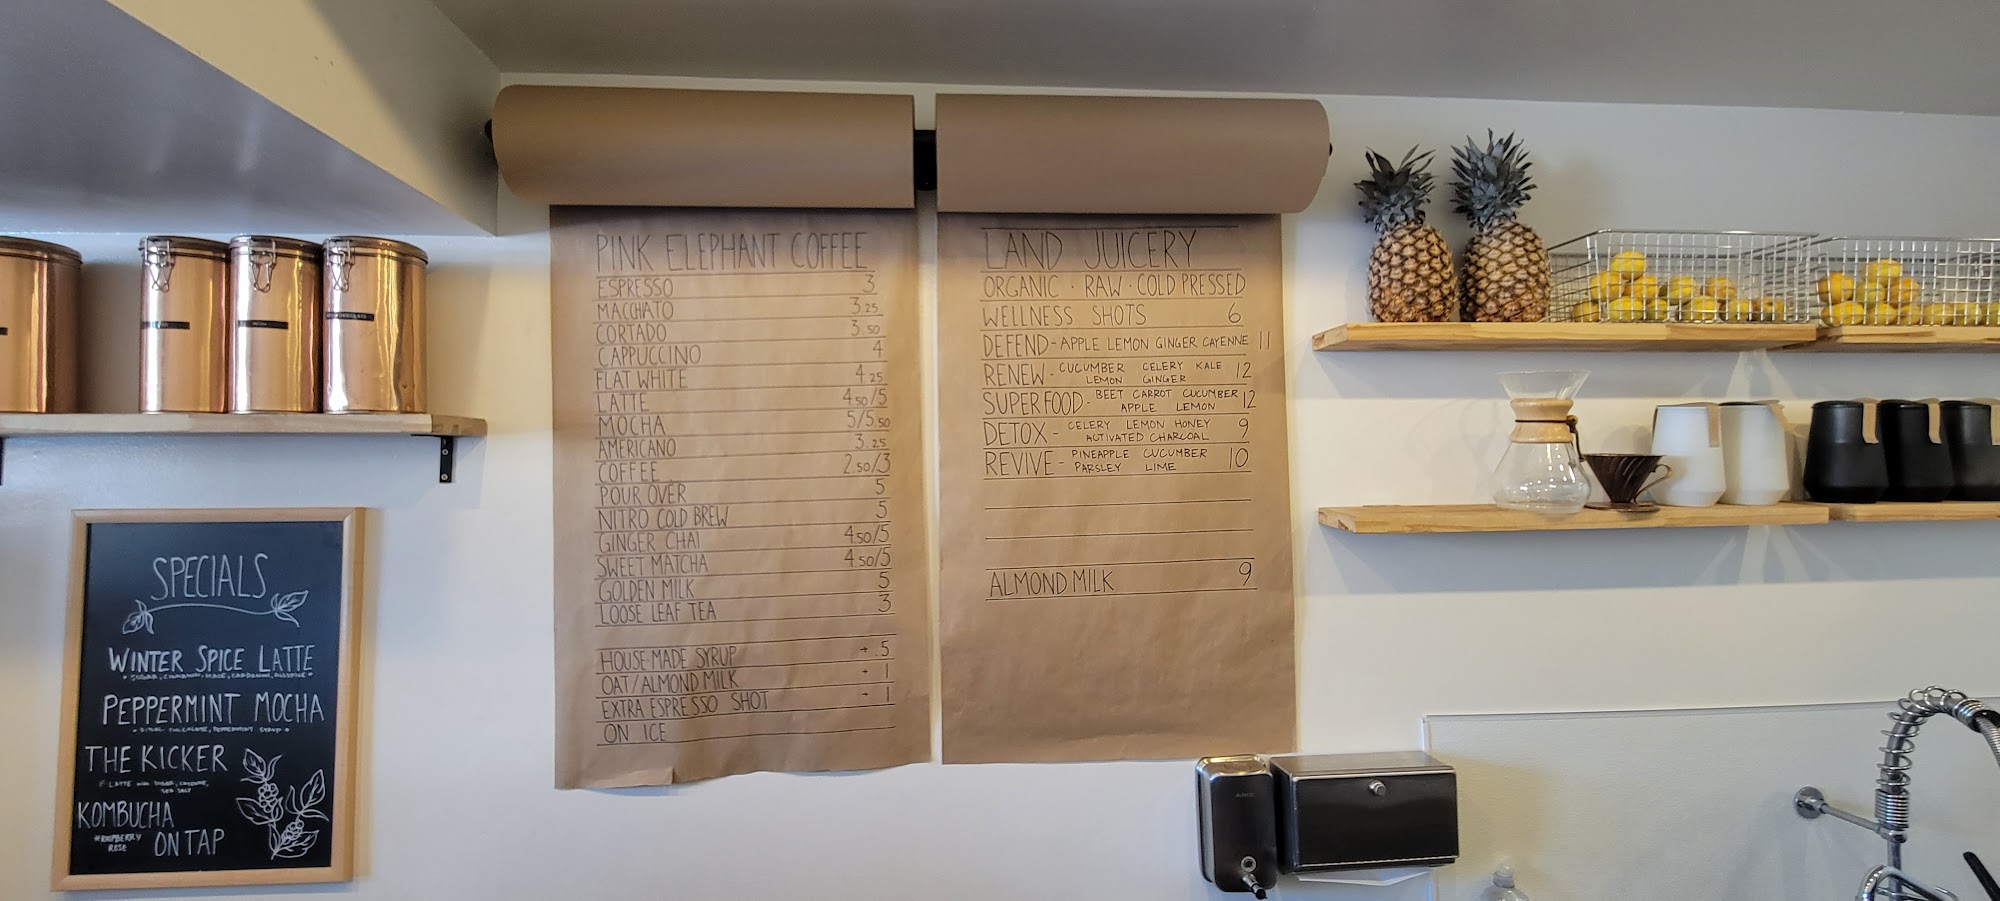 SPECIALS
WINTER SPICE LATTE
PEPPERMINT MOCHA
THE KICKER
KOMBUCHA
ON TAP
PINK ELEPHANT COFFEE
ESPRESSO 3
MACCHIATO 3.25
CORTADO 3.50
CAPPUCCINO 4
FLAT WHITE 4.25
LATTE 4.50/5
MOCHA 5/5.50
AMERICANO 3.25
COFFEE 2.50/3
POUR OVER 5
NITRO COLD BREW 5
GINGER CHAI 4.50/5
SWEET MATCHA 4.50/5
GOLDEN MILK 5
LOOSE LEAF TEA 3
HOUSE-MADE SYRUP + .5
OAT/ALMOND MILK + 1
EXTRA ESPRESSO SHOT + 1
ON ICE
LAND JUICERY
ORGANIC · RAW · COLD PRESSED
WELLNESS SHOTS 6
DEFEND - APPLE LEMON GINGER CAYENNE 11
RENEW - CUCUMBER CELERY KALE 12
LEMON GINGER
SUPERFOOD - BEET CARROT CUCUMBER 12
APPLE LEMON
DETOX - CELERY LEMON HONEY 9
ACTIVATED CHARCOAL
REVIVE - PINEAPPLE CUCUMBER 10
PARSLEY LIME
ALMOND MILK 9